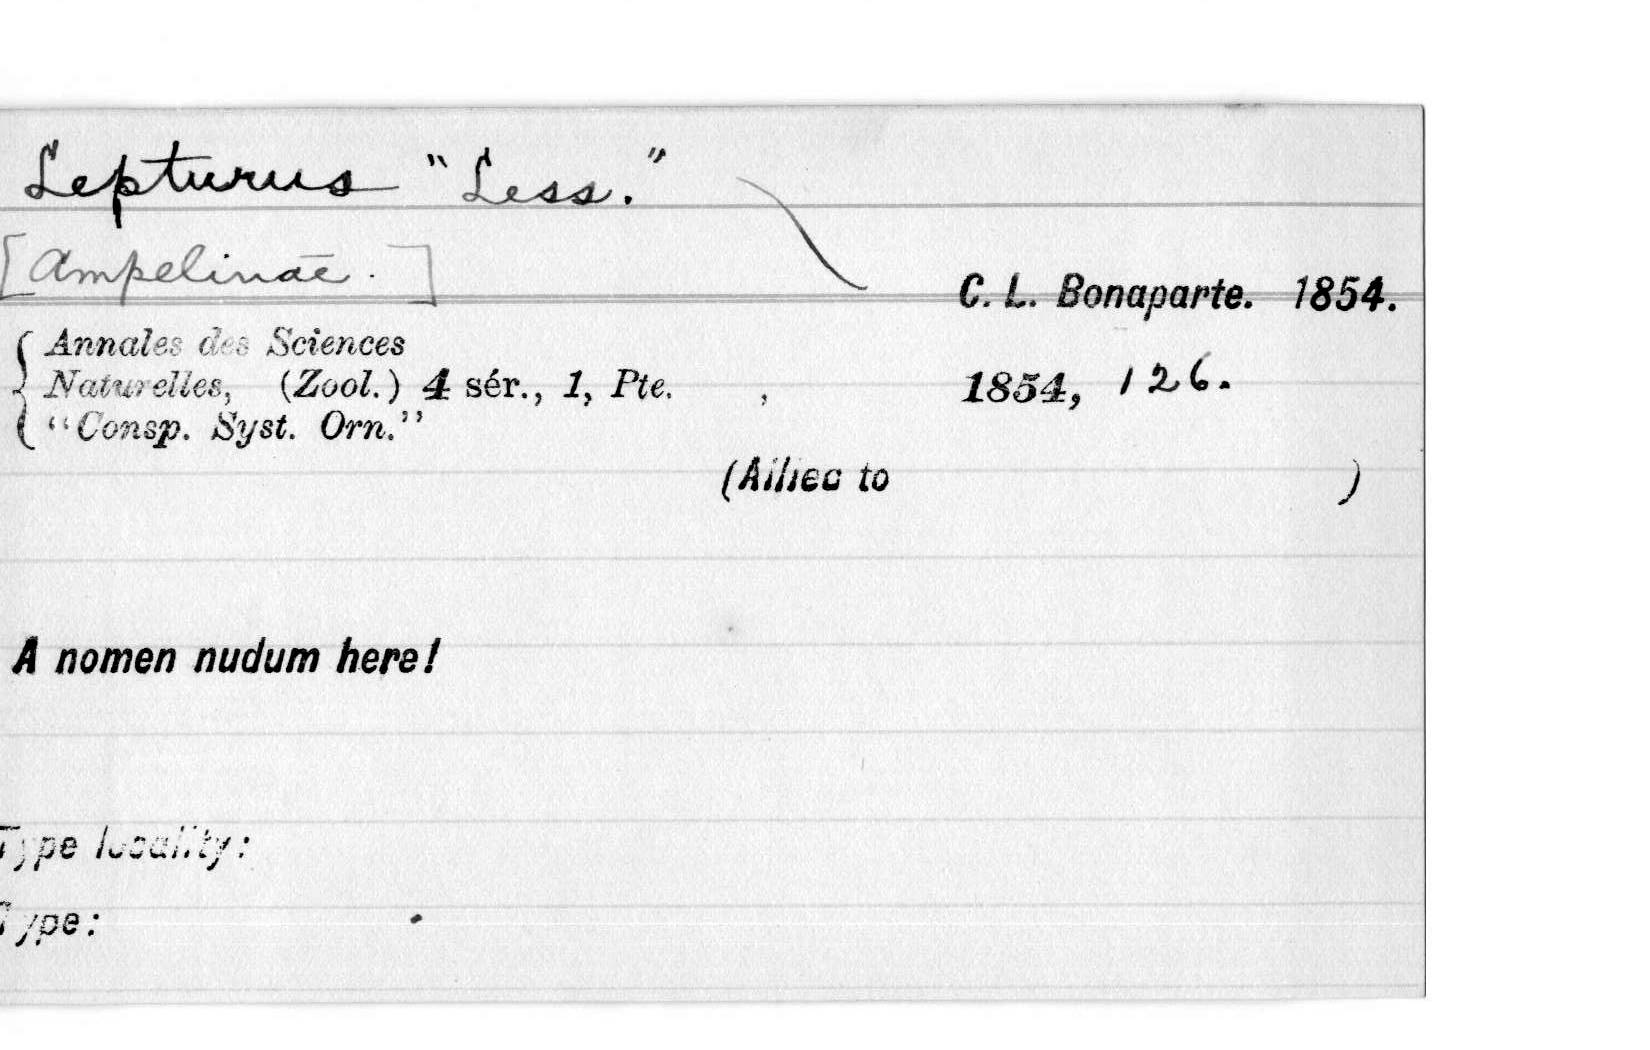 Lepturus "Less."
[Ampelinae.]
C. L. Bonaparte. 1854.
Annales des Sciences
Naturelles, (Zool.) 4 sér., 1, Pte. , 1854, 126.
"Consp. Syst. Orn."
(Allied to )
A nomen nudum here!
Type locality:
Type: